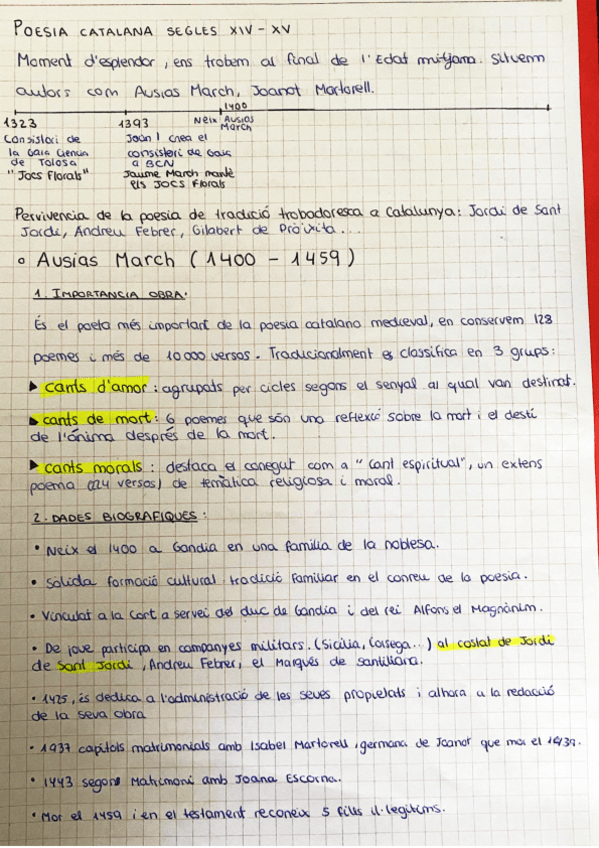 POESIA CATALANA SEGLES XIV - XV
Moment d'esplendor, ens trobem al final de l'Edat mitjana. Situem
autors com Ausias March, Joanot Martorell.
1400
1323 1393 Neix Ausias
March
Consistori de Joan I crea el
la Gaia Ciència consistori de Gaia
de Tolosa a BCN
"Jocs Florals" Jaume March manté
els JOCS Florals
Pervivencia de la poesia de tradició trobadoresca a Catalunya: Jordi de Sant
Jordi, Andreu Febrer, Gilabert de Pròixita...
o Ausias March (1400 - 1459)
1. IMPORTANCIA OBRA:
És el poeta més important de la poesia catalana medieval, en conservem 128
poemes i més de 10 000 versos. Tradicionalment es classifica en 3 grups:
▶ cants d'amor: agrupats per cicles segons el senyal al qual van destinat.
▶ cants de mort: 6 poemes que són una reflexió sobre la mort i el destí
de l'ànima després de la mort.
▶ cants morals: destaca el conegut com a "Cant espiritual", un extens
poema (224 versos) de temàtica religiosa i moral.
2. DADES BIOGRAFIQUES:
• Neix el 1400 a Gandia en una familia de la noblesa.
• Solida formació cultural tradició familiar en el conreu de la poesia.
• Vinculat a la Cort a servei del duc de Gandia i del rei Alfons el Magnànim.
• De jove participa en campanyes militars. (Sicília, Còrsega...) al costat de Jordi
de Sant Jordi, Andreu Febrer, el Marqués de Santillana.
• 1425, és dedica a l'administració de les seves propietats i alhora a la redacció
de la seva obra
• 1937 capítols matrimonials amb Isabel Martorell, germana de Joanot que mor el 1439.
• 1443 segons Matrimoni amb Joana Escorna.
• Mor el 1459 i en el testament reconeix 5 fills il·legítims.